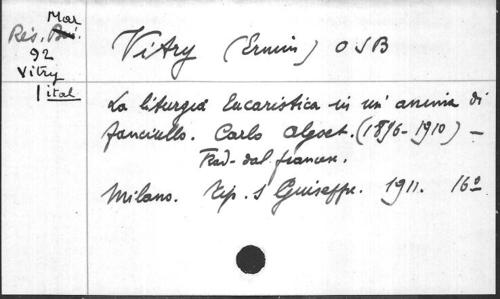 Mar
Rés. Bri.
92
Vitry
1 ital
Vitry (Ermin) OSB
La liturgia Eucaristica in un' anima di
fanciullo. Carlo (1896-1910) —
Trad. dal francese.
Milano. Tip. S Giuseppe. 1911. 16º